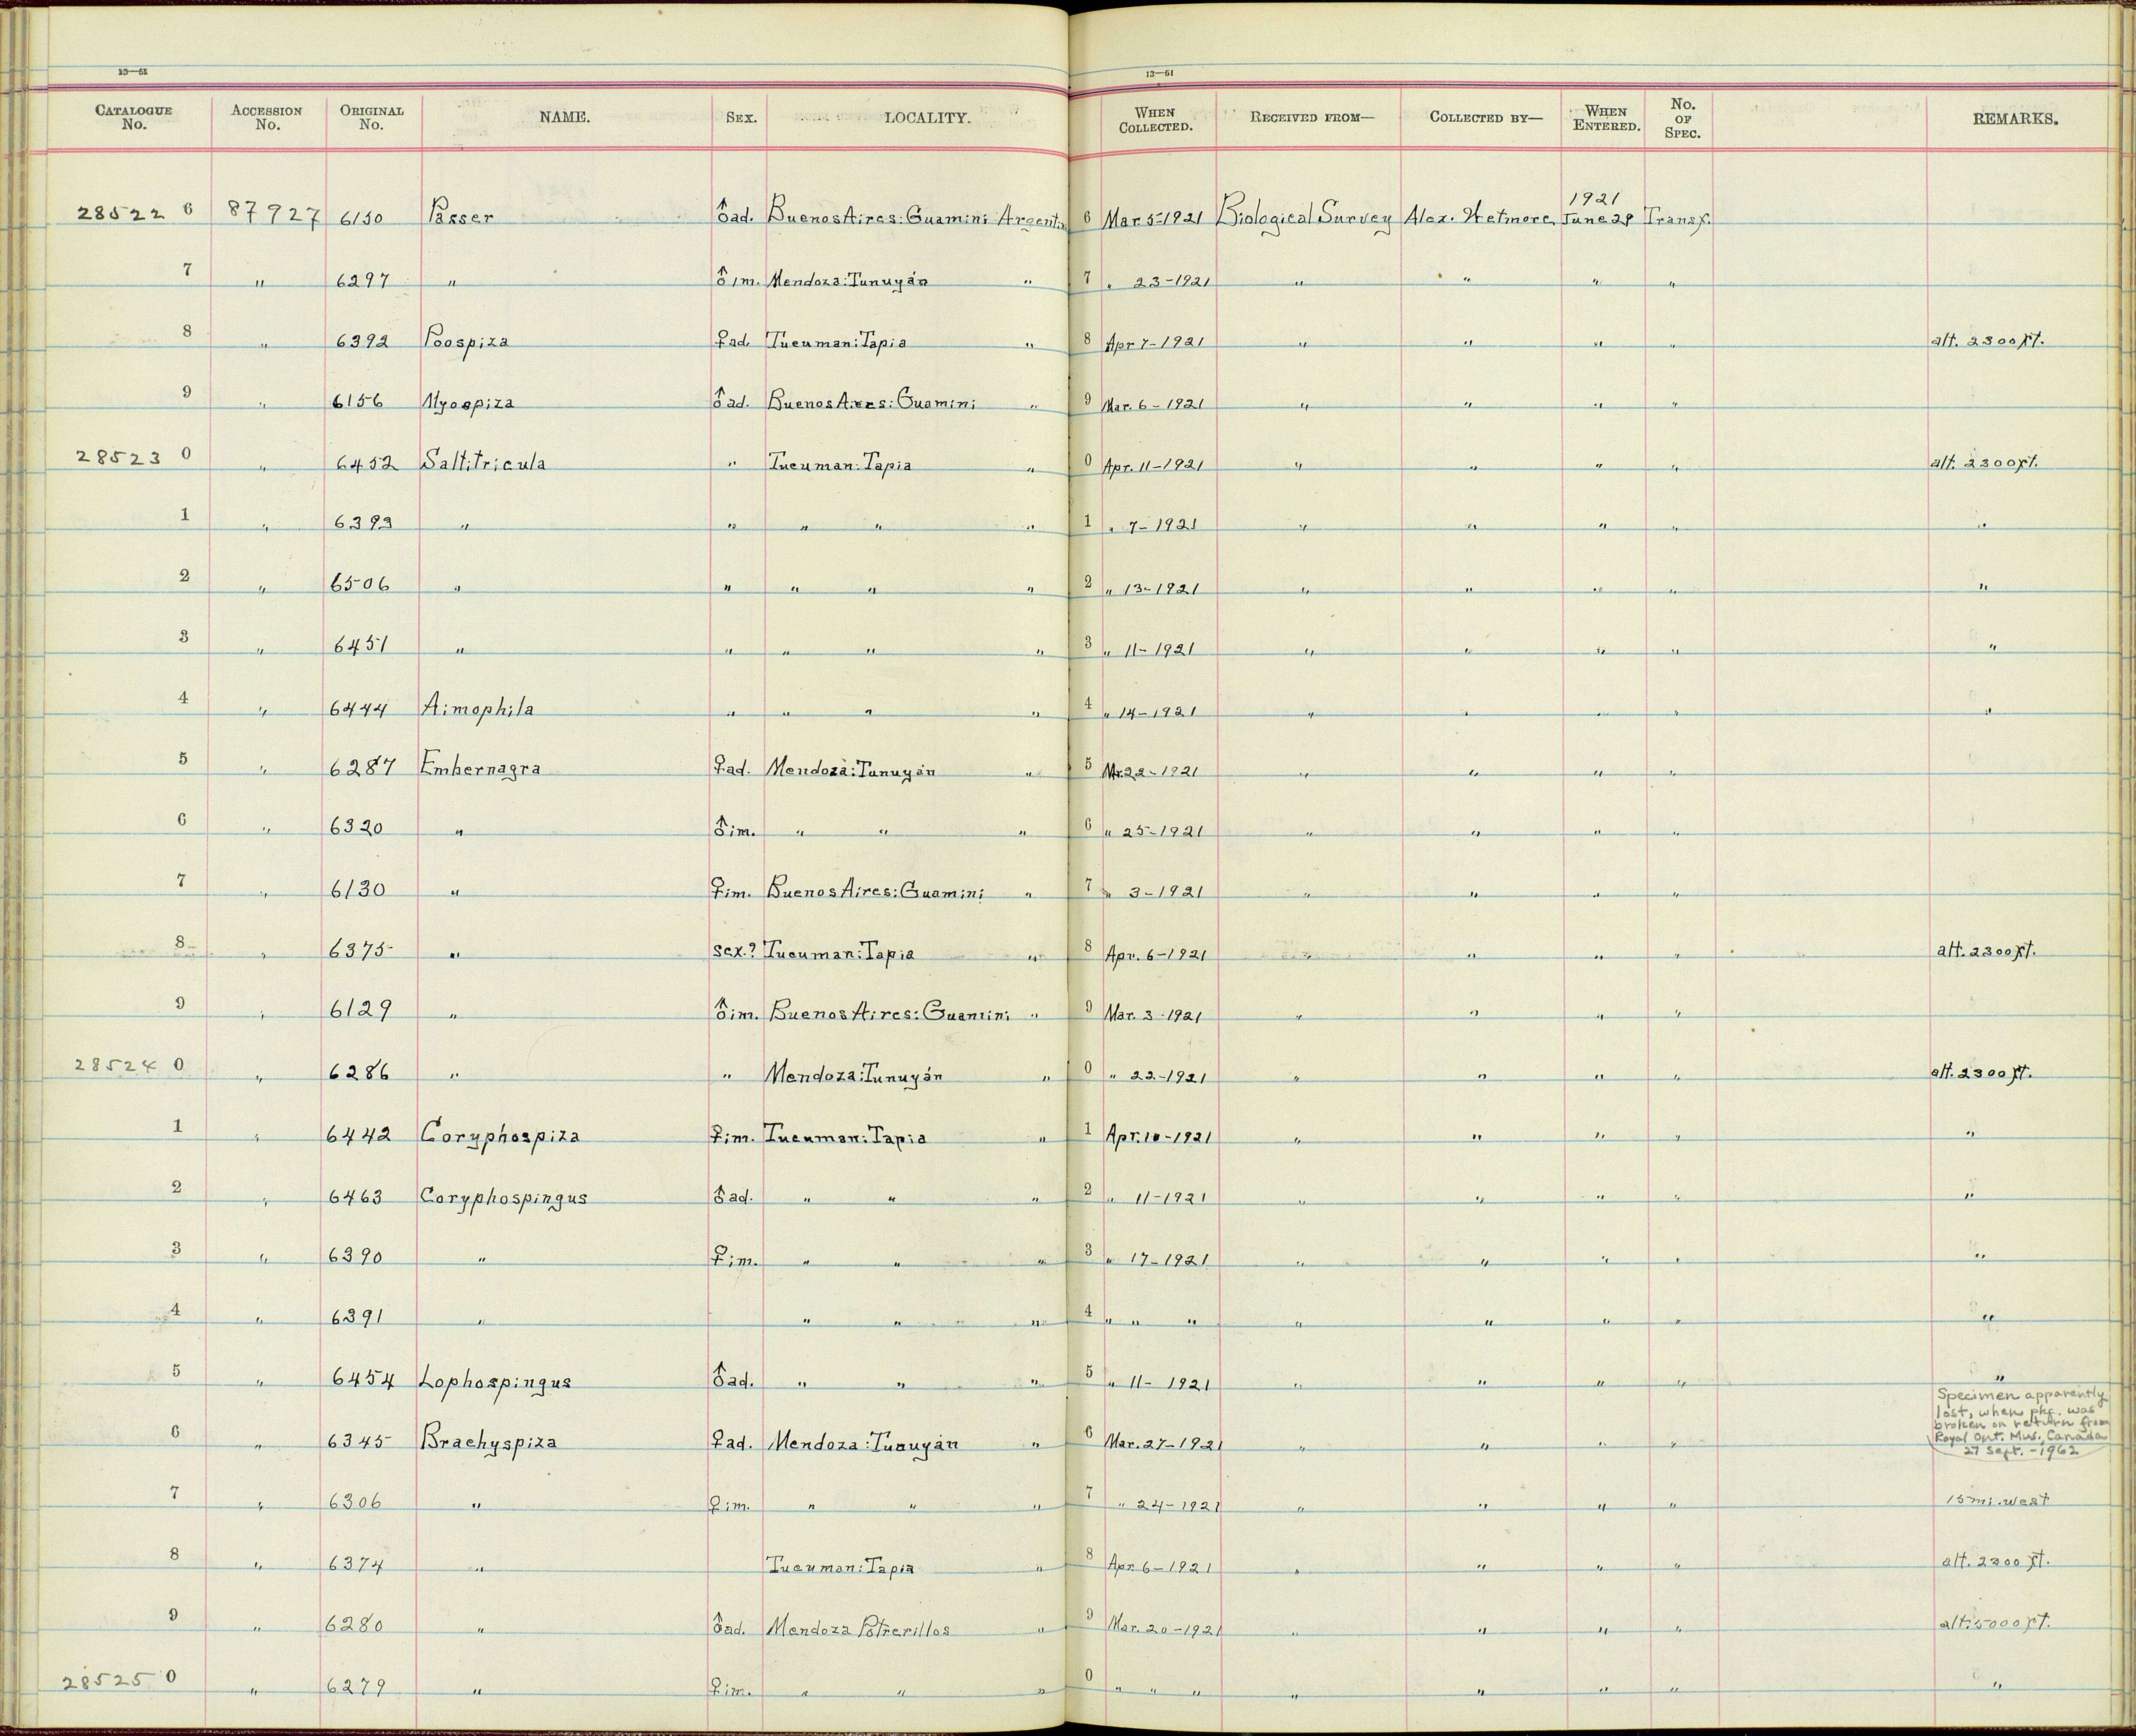 13—51
13—51
CATALOGUE No. ACCESSION No. ORIGINAL No. NAME. SEX. LOCALITY. WHEN COLLECTED. RECEIVED FROM— COLLECTED BY— WHEN ENTERED. No. OF SPEC. REMARKS.
28522 6 87927 6150 Passer ♂ad. Buenos Aires: Guamini Argentin 6 Mar 5-1921 Biological Survey Alex. Wetmore 1921 June 28 Transf.
7 " 6297 " ♂im. Mendoza: Tunuyán " 7 " 23-1921 " " " "
8 " 6392 Poospiza ♀ad. Tucuman: Tapia " 8 Apr 7-1921 " " " " alt. 2300 ft.
9 " 6156 Myospiza ♂ad. Buenos Aires: Guamini " 9 Mar. 6-1921 " " " "
28523 0 " 6452 Saltitricula " Tucuman: Tapia " 0 Apr. 11-1921 " " " " alt. 2300 ft.
1 " 6393 " " " " " 1 " 7-1921 " " " " "
2 " 6506 " " " " " 2 " 13-1921 " " " " "
3 " 6451 " " " " " 3 " 11-1921 " " " " "
4 " 6444 Aimophila " " " " 4 " 14-1921 " " " " "
5 " 6287 Embernagra ♀ad. Mendoza: Tunuyán " 5 Mr. 22-1921 " " " "
6 " 6320 " ♂im. " " " 6 " 25-1921 " " " "
7 " 6130 " ♀im. Buenos Aires: Guamini " 7 " 3-1921 " " " "
8 " 6375 " sex.? Tucuman: Tapia " 8 Apr. 6-1921 " " " " alt. 2300 ft.
9 " 6129 " ♂im. Buenos Aires: Guamini " 9 Mar. 3-1921 " " " "
28524 0 " 6286 " " Mendoza: Tunuyán " 0 " 22-1921 " " " " alt. 2300 ft.
1 " 6442 Coryphospiza ♀im. Tucuman: Tapia " 1 Apr. 10-1921 " " " " "
2 " 6463 Coryphospingus ♂ad. " " " 2 " 11-1921 " " " " "
3 " 6390 " ♀im. " " " 3 " 17-1921 " " " " "
4 " 6391 " " " " 4 " " " " " " " "
5 " 6454 Lophospingus ♂ad. " " " 5 " 11-1921 " " " " "
Specimen apparently
lost, when pkg. was
broken on return from
Royal Ont. Mus., Canada
27 Sept. -1962
6 " 6345 Brachyspiza ♀ad. Mendoza: Tunuyán " 6 Mar. 27-1921 " " " "
7 " 6306 " ♀im. " " " 7 " 24-1921 " " " " 15 mi. west
8 " 6374 " Tucuman: Tapia " 8 Apr. 6-1921 " " " " alt. 2300 ft.
9 " 6280 " ♂ad. Mendoza Potrerillos " 9 Mar. 20-1921 " " " " alt. 5000 ft.
28525 0 " 6279 " ♀im. " " " 0 " " " " " " " "